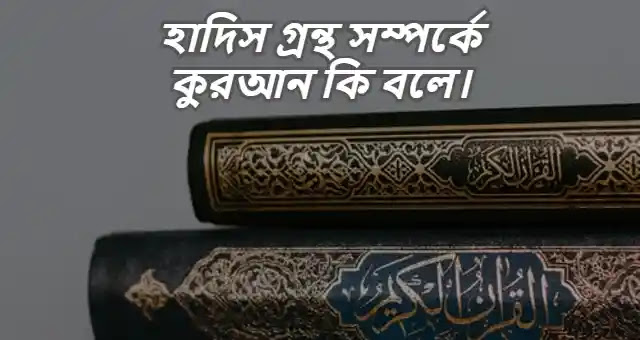 হাদিস গ্রন্থ সম্পর্কে
কুরআন কি বলে।
القرآن الكريم
القرآن الكريم